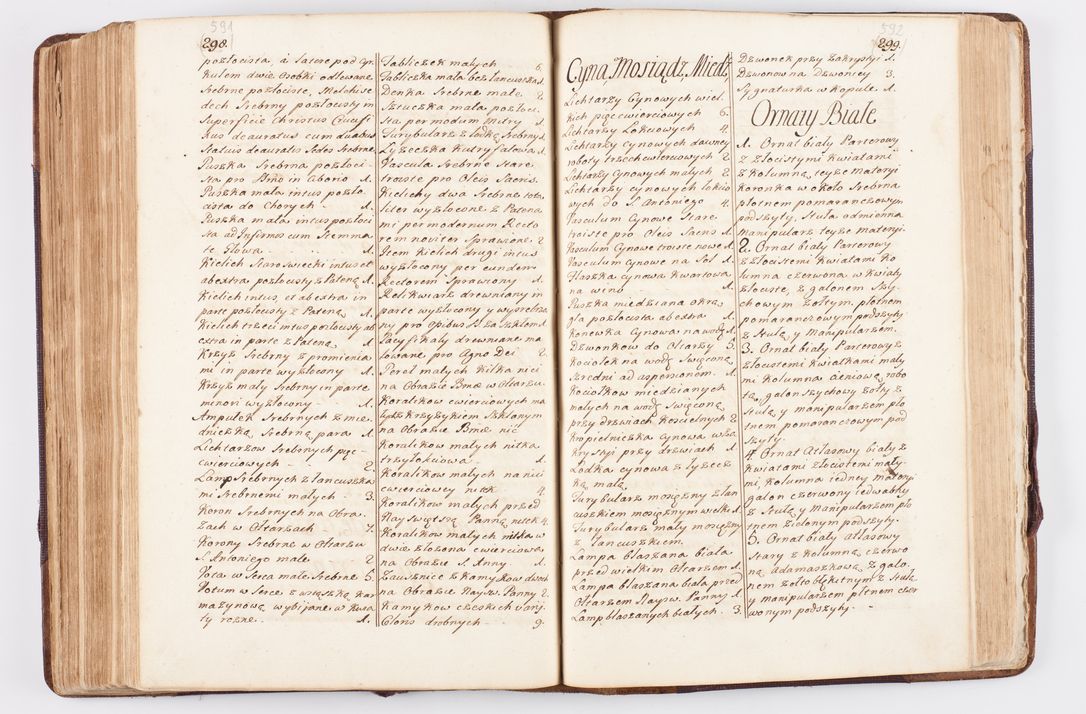 591
298.
pozłocista, a latere pod Cyr
kulem dwie Osobki odlewane
srebrne pozłociste, Melchise
dech Srebrny pozłocisty in
Superficie Christus Crucifi
xus deauratus cum duabus
Statuis deauratis Sedes Srebrne
Puszka Srebrna pozłoci-
sta pro Bmo in Ciborio 1.
Puszka mała intus pozło
cista do Chorych 1.
Puszka mała intus pozłoci
sta ad Infirmos cum Stemma
te Słowa 1.
Kielich Staroswiecki intus et
ab extra pozłocisty z Pateną 1.
Kielich intus, et ab extra in
parte pozłocisty z Pateną 1.
Kielich trzeci intus pozłocisty ab
extra in parte z Pateną 1.
Krzyż Srebrny z promienia
mi in parte wyzłocony 1.
Krzyż mały Srebrny in parte
minori wyzłocony 1.
Ampułek Srebrnych z mie
dniczką Srebrną para 1.
Lichtarzow Srebrnych pięc
cwierciowych 2.
Lamp Srebrnych z łancuszka
mi Srebrnemi małych 3.
Koron Srebrnych na Obra-
zach w Ołtarzach 7.
Korony Srebrne w Ołtarzu
S. Antoniego małe 2.
Vota w Serca małe Srebrne 5.
Votum w Serce z wstązką kar
mazynową wybijane w Kwia
ty rozne 1.
Tabliczek małych 6.
Tabliczka mała bez łancuszka 1.
Denka Srebrne małe 2.
Sztuczka mała pozłoci
sta per modum Mitry 1.
Turybularz z łodką Srebrny 1.
Łyzeczka Kutry falowa 1.
Vascula Srebrne Stare
troiste pro Oleis Sacris.
Kielichy dwa Srebrne tota
liter wyzłocone z Patena
mi per modernum Recto
rem noviter Sprawione 2.
Item Kielich drugi intus
wyzłocony per eundem
Rectorem Sprawiony 1.
Relikwiarz drewniany in
parte wyzłocony y wysrebrza
ny pro za Szkłem 1.
Pacyfikały drewniane ma
lowane pro Agno Dei 2.
Pereł małych kilka nici
na Obrazie Bmæ w Ołtarzu
Koralikow cwierciowych ma
łych z krzyzykiem Szklonym
na Obrazie Bmæ nic
Koralikow małych nitka
trzyłokciowa 1.
Koralikow małych na nici
cwierciowey nitek 4.
Koralikow małych przed
Nayswiętszą Panną nitek 4.
Koralikow małych nitka w
dwie złozona cwierciowa
na Obrazie S. Anny 1.
Zausznice z Kamykow dwoch
na Obrazie Nays. Panny 2.
Kamykow czeskich varij
Coloris drobnych 9.
592
299.
Cyna, Mosiądz, Miedz,
Lichtarzy Cynowych wiel
kich pięc cwierciowych 6.
Lichtarzy Łokciowych 4.
Lichtarzy cynowych dawney
roboty trzech cwierciowych 2
Lichtarzy Cynowych małych 2
Lichtarzy cynowych łokcio
wych do S. Antoniego 4.
Vasculum Cynowe Stare
troiste pro Oleis Sacris 1.
Vasculum Cynowe troiste nowe 1.
Vasculum cynowe na Sol 1.
Flaszka cynowa kwartowa
na wino 1.
Puszka miedziana okrą
gła pozłocista ab extra 1.
Konewka Cynowa na wodę 1.
Dzwonkow do Ołtarzy 5.
Kociołek na wodę Swięconą
sredni ad aspersionem 1.
Kociołkow miedzianych
małych na wodę Swięconą
przy drzwiach koscielnych 2
Kropielniczka Cynowa w Za
krystyi przy drzwiach 1.
Łodka cynowa z łyzecz
ką małą 1.
Turybularz mosięzny z łan
cuszkiem mosięznym wielki 1.
Turybularz mały mosięzny
z łancuszkiem 1.
Lampa blaszana biała
przed wielkim Ołtarzem 1.
Lampa blaszana biała przed
Ołtarzem Nayśw. Panny 1.
Lamp blaszanych białych 3.
Dzwonek przy Zakrystyi 1.
Dzwonow na Dzwonicy 3.
Sygnaturka w Kopule 1.
Ornaty Białe
1. Ornat biały Parterowy
z złocistymi kwiatami
z Kolumną teyze Materyi
Koronka w około Srebrna
płotnem pomaranczowym
podszyty. Stuła odmienna
Manipularz teyze materyi.
2. Ornat biały Parterowy
z złocistemi kwiatami Ko
lumna czerwona w kwiaty
złociste, z galonem Szy-
chowym zołtym, płotnem
pomaranczowym podszyty
z Stułą y Manipularzem.
3. Ornat biały Parterowy z
złocistemi kwiatkami mały
mi Kolumna cieniową robo
tą, galon szychowy zołty z
Stułą y manipularzem pło
tnem pomaranczowym pod
szyty.
4. Ornat Atłasowy biały z
kwiatami złocistemi mały-
mi, Kolumna iedney materyi
galon czerwony iedwabny
z Stułą y Manipularzem pło
tnem zielonym podszyty.
5. Ornat biały Atłasowy
Stary z Kolumną czerwo
ną adamaszkową z galo-
nem zołto błękitnym z Stułą
y Manipularzem płtnem czer
wonym podszyty.